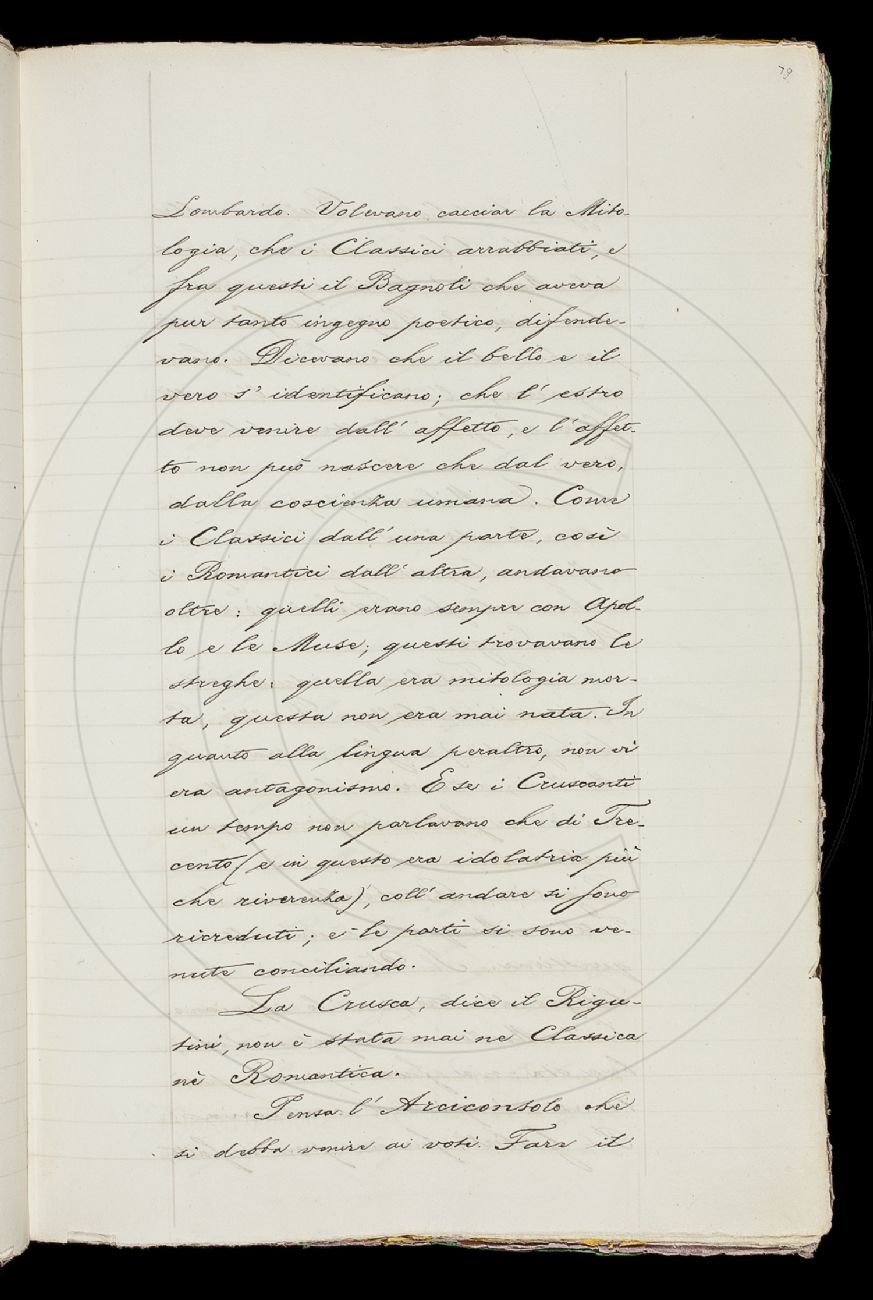 79
Lombardo. Volevano cacciar la Mito-
logia, che i Classici arrabbiati, e
fra questi il Bagnoli che aveva
pur tanto ingegno poetico, difende-
vano. Dicevano che il bello e il
vero s' identificano; che l' estro
deve venire dall' affetto, e l' affet-
to non può nascere che dal vero,
dalla coscienza umana. Come
i Classici dall' una parte, così
i Romantici dall' altra, andavano
oltre: quelli erano sempre con Apol-
lo e le Muse; questi trovavano le
streghe: quella era mitologia mor-
ta, questa non era mai nata. In
quanto alla lingua peraltro, non vi
era antagonismo. E se i Cruscanti
un tempo non parlavano che di Tre-
cento (e in questo era idolatria più
che riverenza), coll' andare si sono
ricreduti; e le parti si sono ve-
nute conciliando.
La Crusca, dice il Rigu-
tini, non è stata mai ne Classica
nè Romantica.
Pensa l' Arciconsolo che
si debba venire ai voti. Fare il